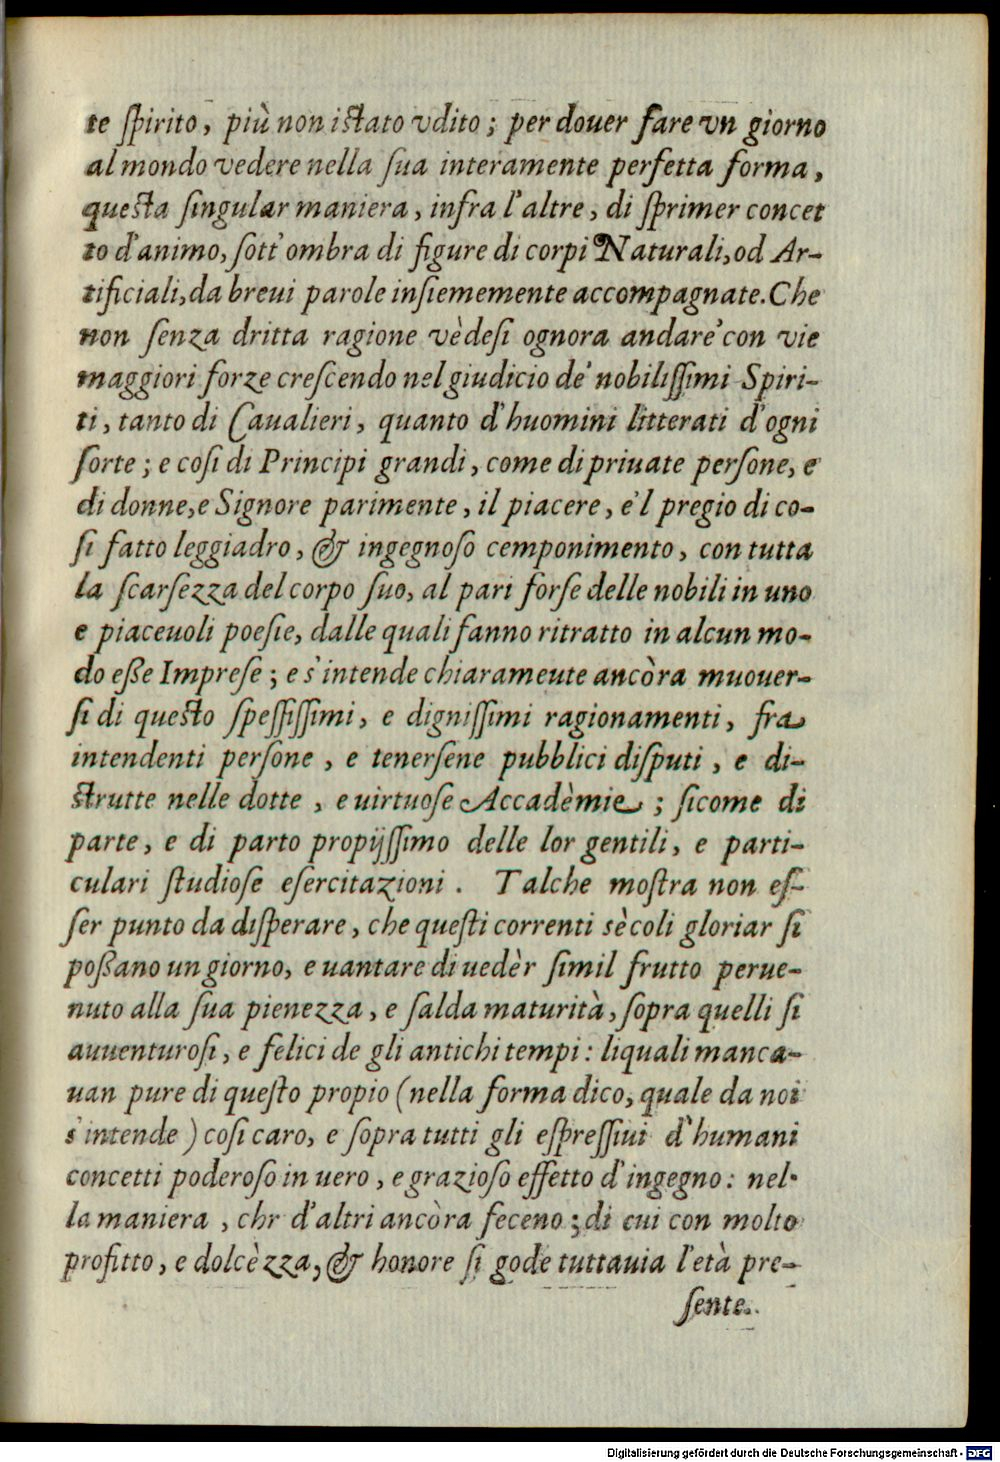 te ſpirito, più non iſtato vdito; per douer fare vn giorno
al mondo vedere nella ſua interamente perfetta forma,
queſta ſingular maniera, infra l'altre, di ſprimer concet
to d'animo, ſott' ombra di figure di corpi Naturali, od Ar-
tificiali, da breui parole inſiememente accompagnate. Che
non ſenza dritta ragione vèdeſi ognora andare' con vie
maggiori forze creſcendo nel giudicio de' nobiliſſimi Spiri-
ti, tanto di Caualieri, quanto d'huomini litterati d'ogni
ſorte; e coſi di Principi grandi, come di priuate perſone, e
di donne, e Signore parimente, il piacere, e'l pregio di co-
ſi fatto leggiadro, & ingegnoſo cemponimento, con tutta
la ſcarſezza del corpo ſuo, al pari forſe delle nobili in uno
e piaceuoli poeſie, dalle quali fanno ritratto in alcun mo-
do eſſe Impreſe; e s'intende chiarameute ancòra muouer-
ſi di queſto ſpeſſiſſimi, e digniſſimi ragionamenti, fra
intendenti perſone, e tenerſene pubblici diſputi, e di-
ſtrutte nelle dotte, e uirtuoſe Accadèmie; ſicome di
parte, e di parto propijſſimo delle lor gentili, e parti-
culari ſtudioſe eſercitazioni. Talche moſtra non eſ-
ſer punto da diſperare, che queſti correnti sècoli gloriar ſi
poſſano un giorno, e uantare di uedèr ſimil frutto perue-
nuto alla ſua pienezza, e ſalda maturità, ſopra quelli ſi
auuenturoſi, e felici de gli antichi tempi: liquali manca-
uan pure di queſto propio (nella forma dico, quale da noi
s'intende) coſi caro, e ſopra tutti gli eſpreſſiui d'humani
concetti poderoſo in uero, e grazioſo effetto d'ingegno: nel-
la maniera, chr d'altri ancòra feceno; di cui con molto
profitto, e dolcèzza, & honore ſi gode tuttauia l'età pre-
ſente.
Digitalisierung gefördert durch die Deutsche Forschungsgemeinschaft - DFG